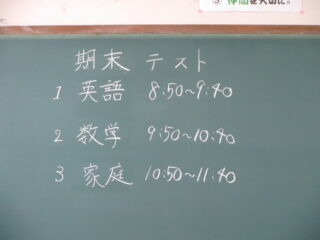 ⑤ 仲間を大切に。
期末 テスト
1 英語 8:50〜9:40
2 数学 9:50〜10:40
3 家庭 10:50〜11:40